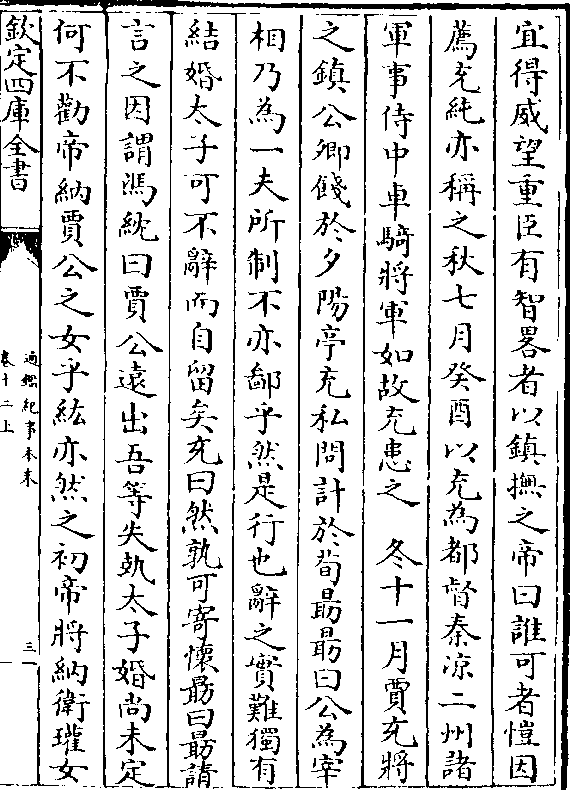 宜得威望重臣有智畧者以鎮撫之帝曰誰可者愷因
薦充純亦稱之秋七月癸酉以充為都督秦涼二州諸
軍事侍中車騎將軍如故充患之　冬十一月賈充將
之鎮公卿餞於夕陽亭充私問計於荀勗勗曰公為宰
相乃為一夫所制不亦鄙乎然是行也辭之實難獨有
結婚太子可不辭而自留矣充曰然孰可寄懷勗曰勗請
言之因謂馮紞曰賈公遠出吾等失埶太子婚尚未定
何不勸帝納賈公之女乎紞亦然之初帝將納衛瓘女
欽定四庫全書
通鑑紀事本末
卷十二上
三